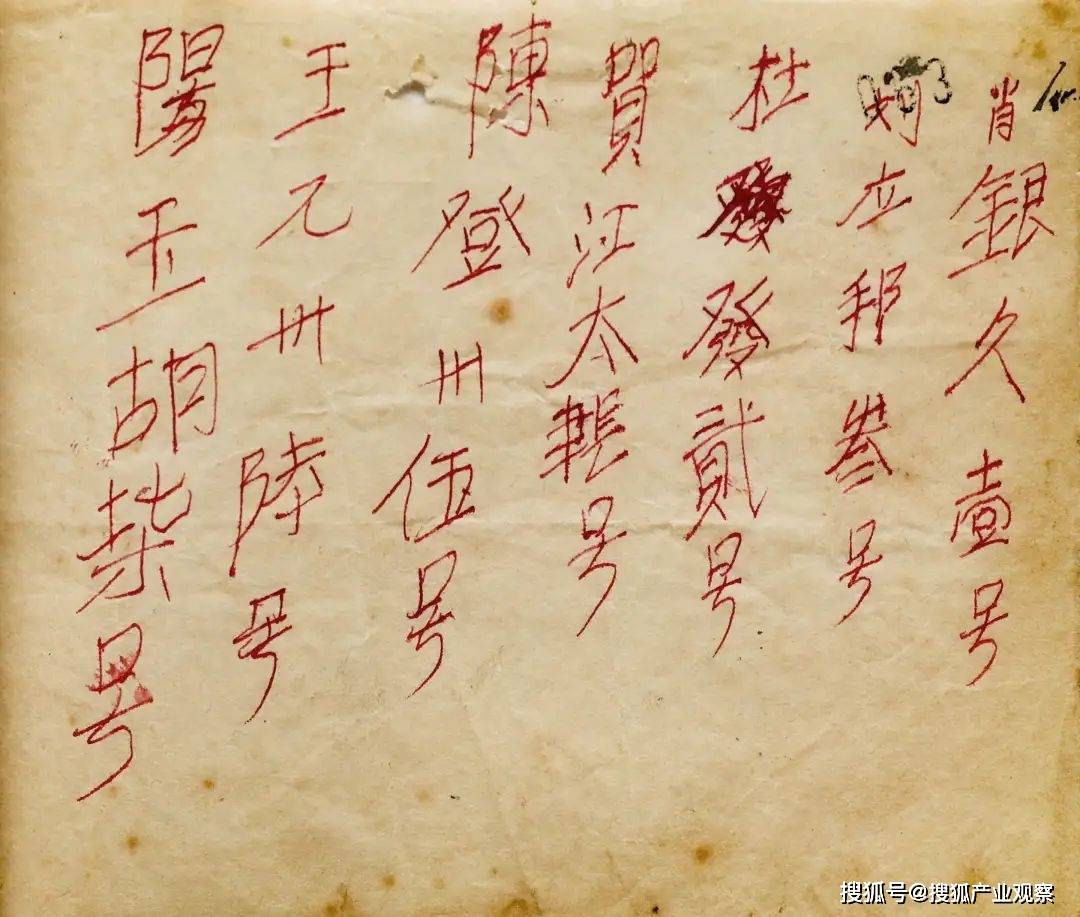 肖銀久壹号
立邦叁号
杜發貳号
賀江太肆号
陳登卅伍号
王元卅陸号
陽玉胡柒号
搜狐号@搜狐产业观察